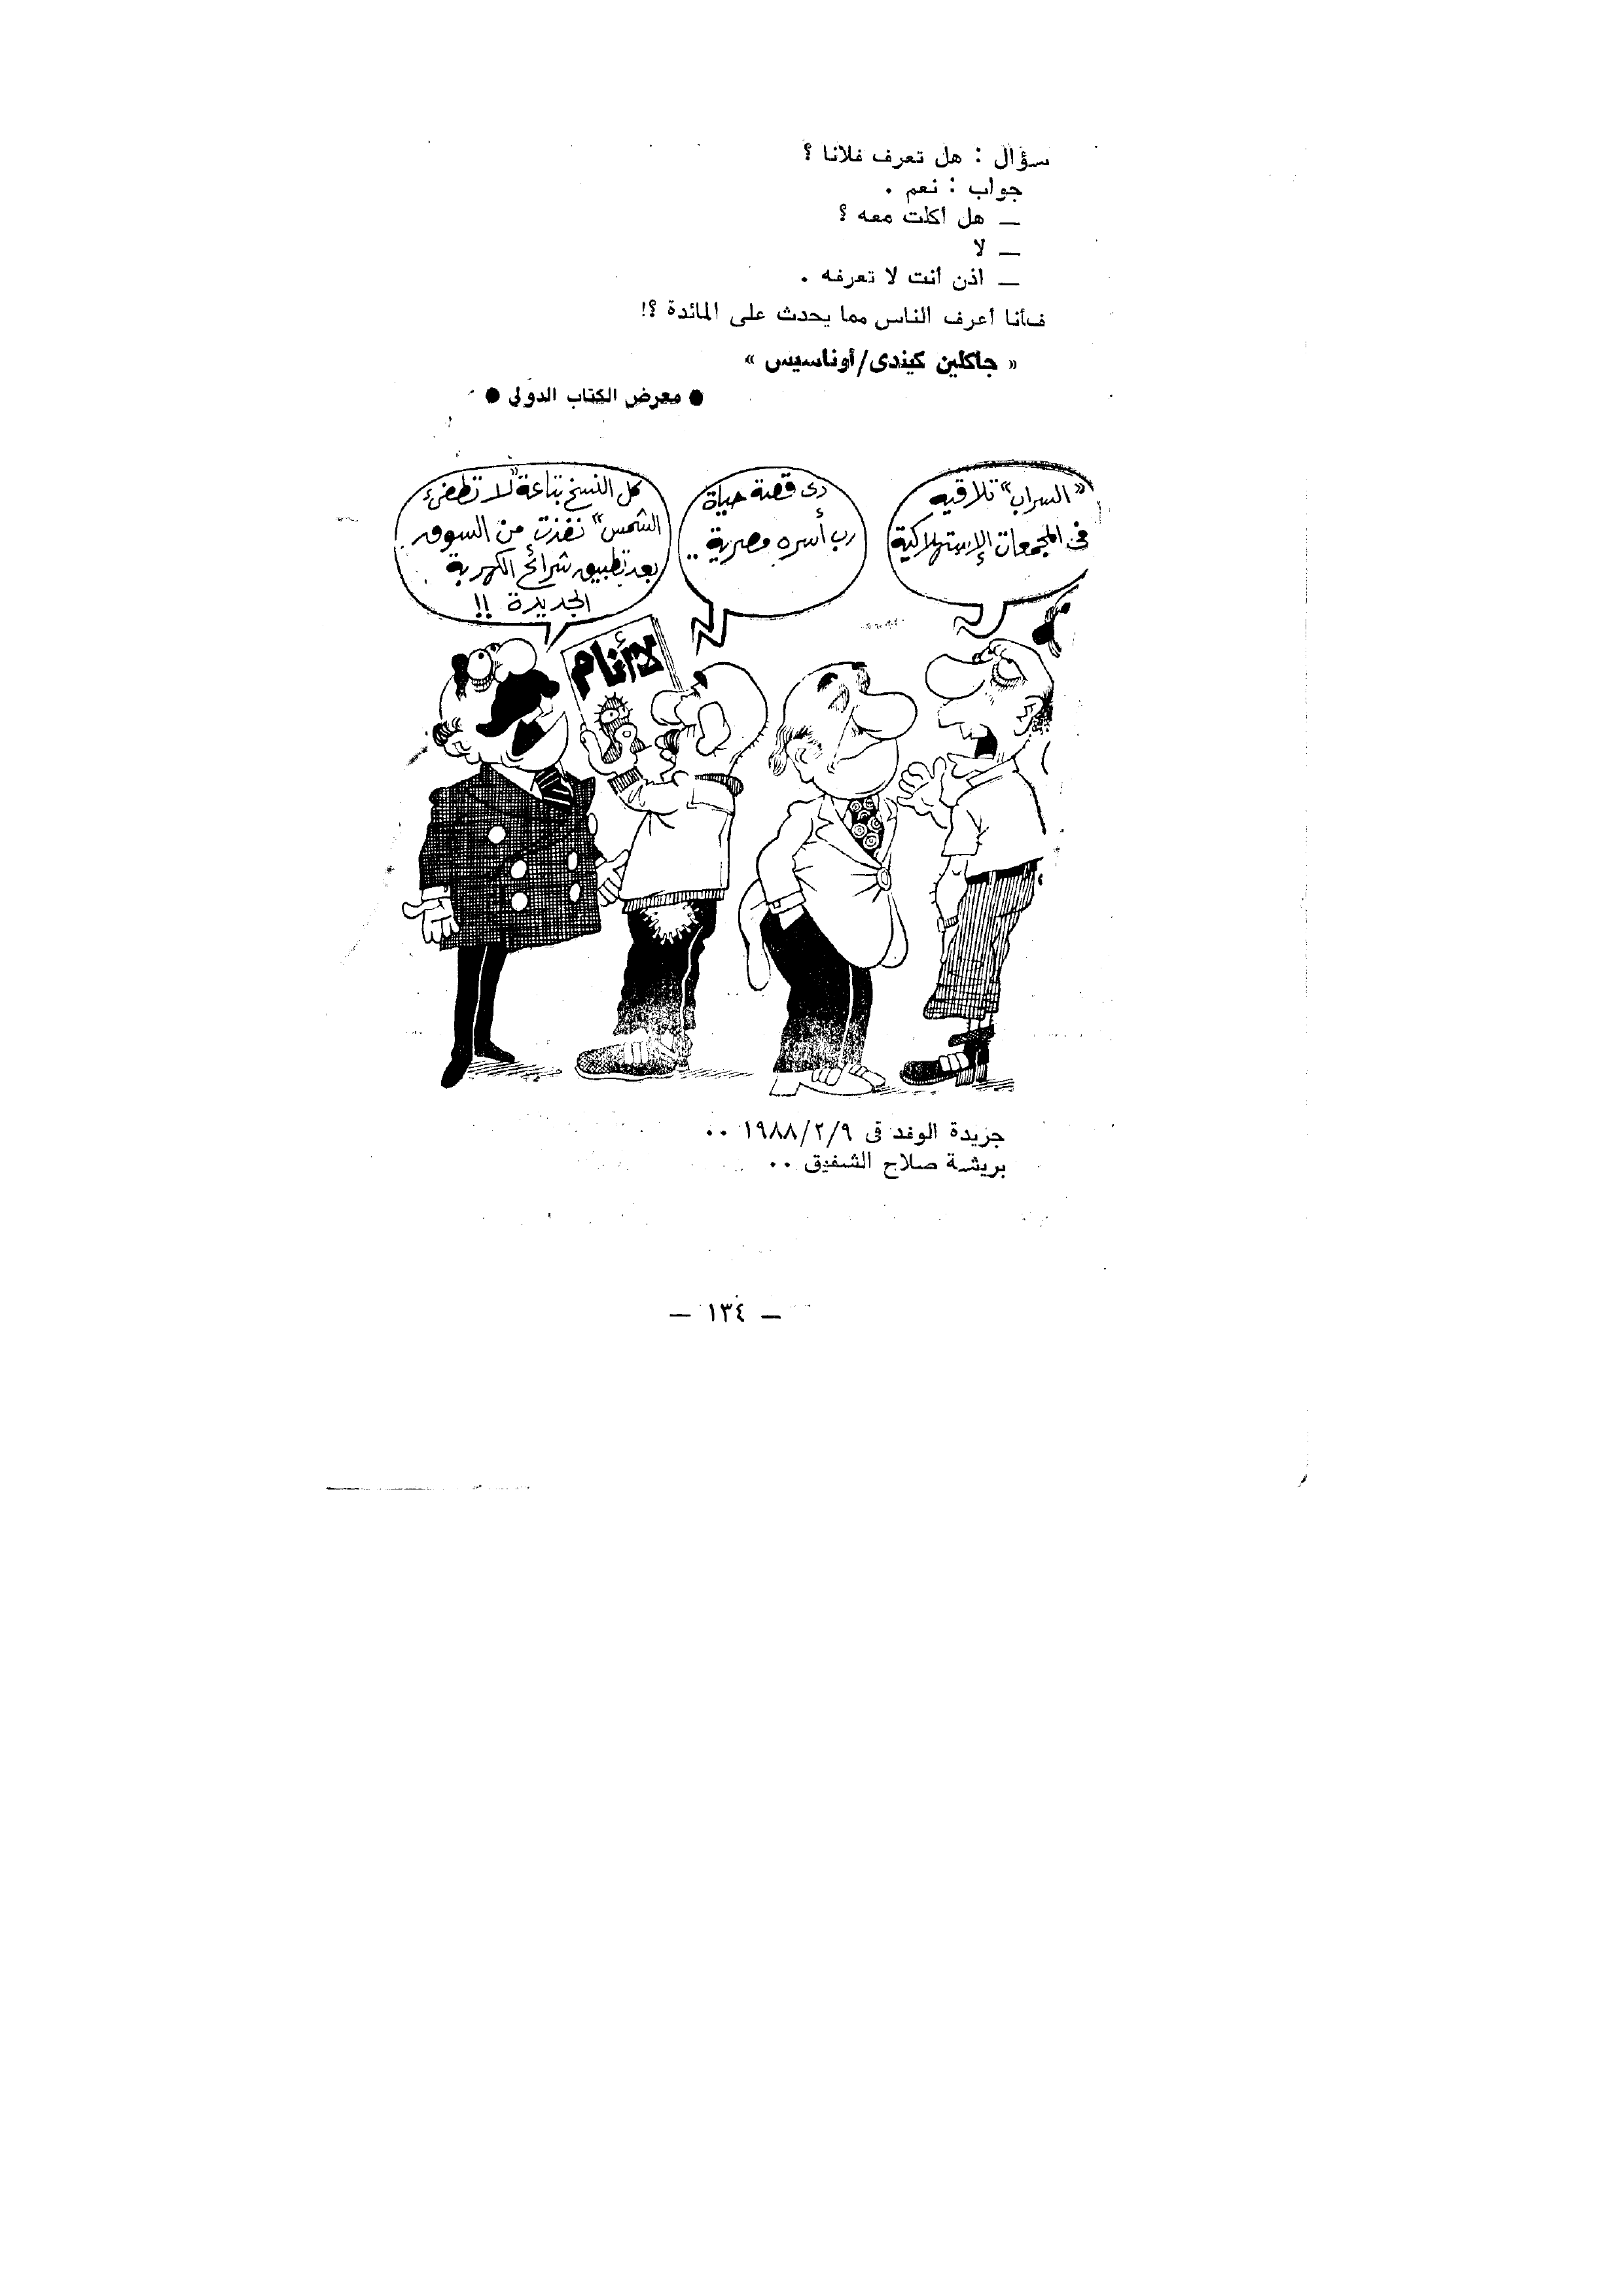 سؤال : هل تعرف فلانا ؟
جواب : نعم .
— هل أكلت معه ؟
— لا
— اذن أنت لا تعرفه .
فأنا أعرف الناس مما يحدث على المائدة ؟!
« جاكلين كيندى/أوناسيس »
● معرض الكتاب الدولى ●
"السراب" تلاقيه
فى المجمعات الإستهلاكية
دى قصة حياة
رب أسره مصرية ..
كل النسخ بتاعة "لا تطفىء
الشمس" نفذت من السوق
بعد تطبيق شرائح الكهربة
الجديدة !!
لا أنام
جريدة الوفد فى ١٩٨٨/٢/٩ ..
بريشة صلاح الشفيق ..
— ١٣٤ —